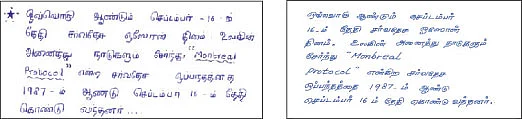 ஒவ்வொரு ஆண்டும் செப்டம்பர் -16-ம்
தேதி சர்வதேச ஓசோன் தினம் உலகின்
அனைத்து நாடுகளும் சேர்ந்து "Montreal
Protocol" என்ற சர்வதேச ஒப்பந்தத்தை
1987-ம் ஆண்டு செப்டம்பர் 16-ம் தேதி
கொண்டு வந்தனர்....
ஒவ்வொரு ஆண்டும் செப்டம்பர்
16-ம் தேதி சர்வதேச ஓசோன்
தினம். உலகின் அனைத்து நாடுகளும்
சேர்ந்து "Montreal
Protocol" என்கிற சர்வதேச
ஒப்பந்தத்தை 1987-ம் ஆண்டு
செப்டம்பர் 16 ம் தேதி கொண்டு வந்தனர்.